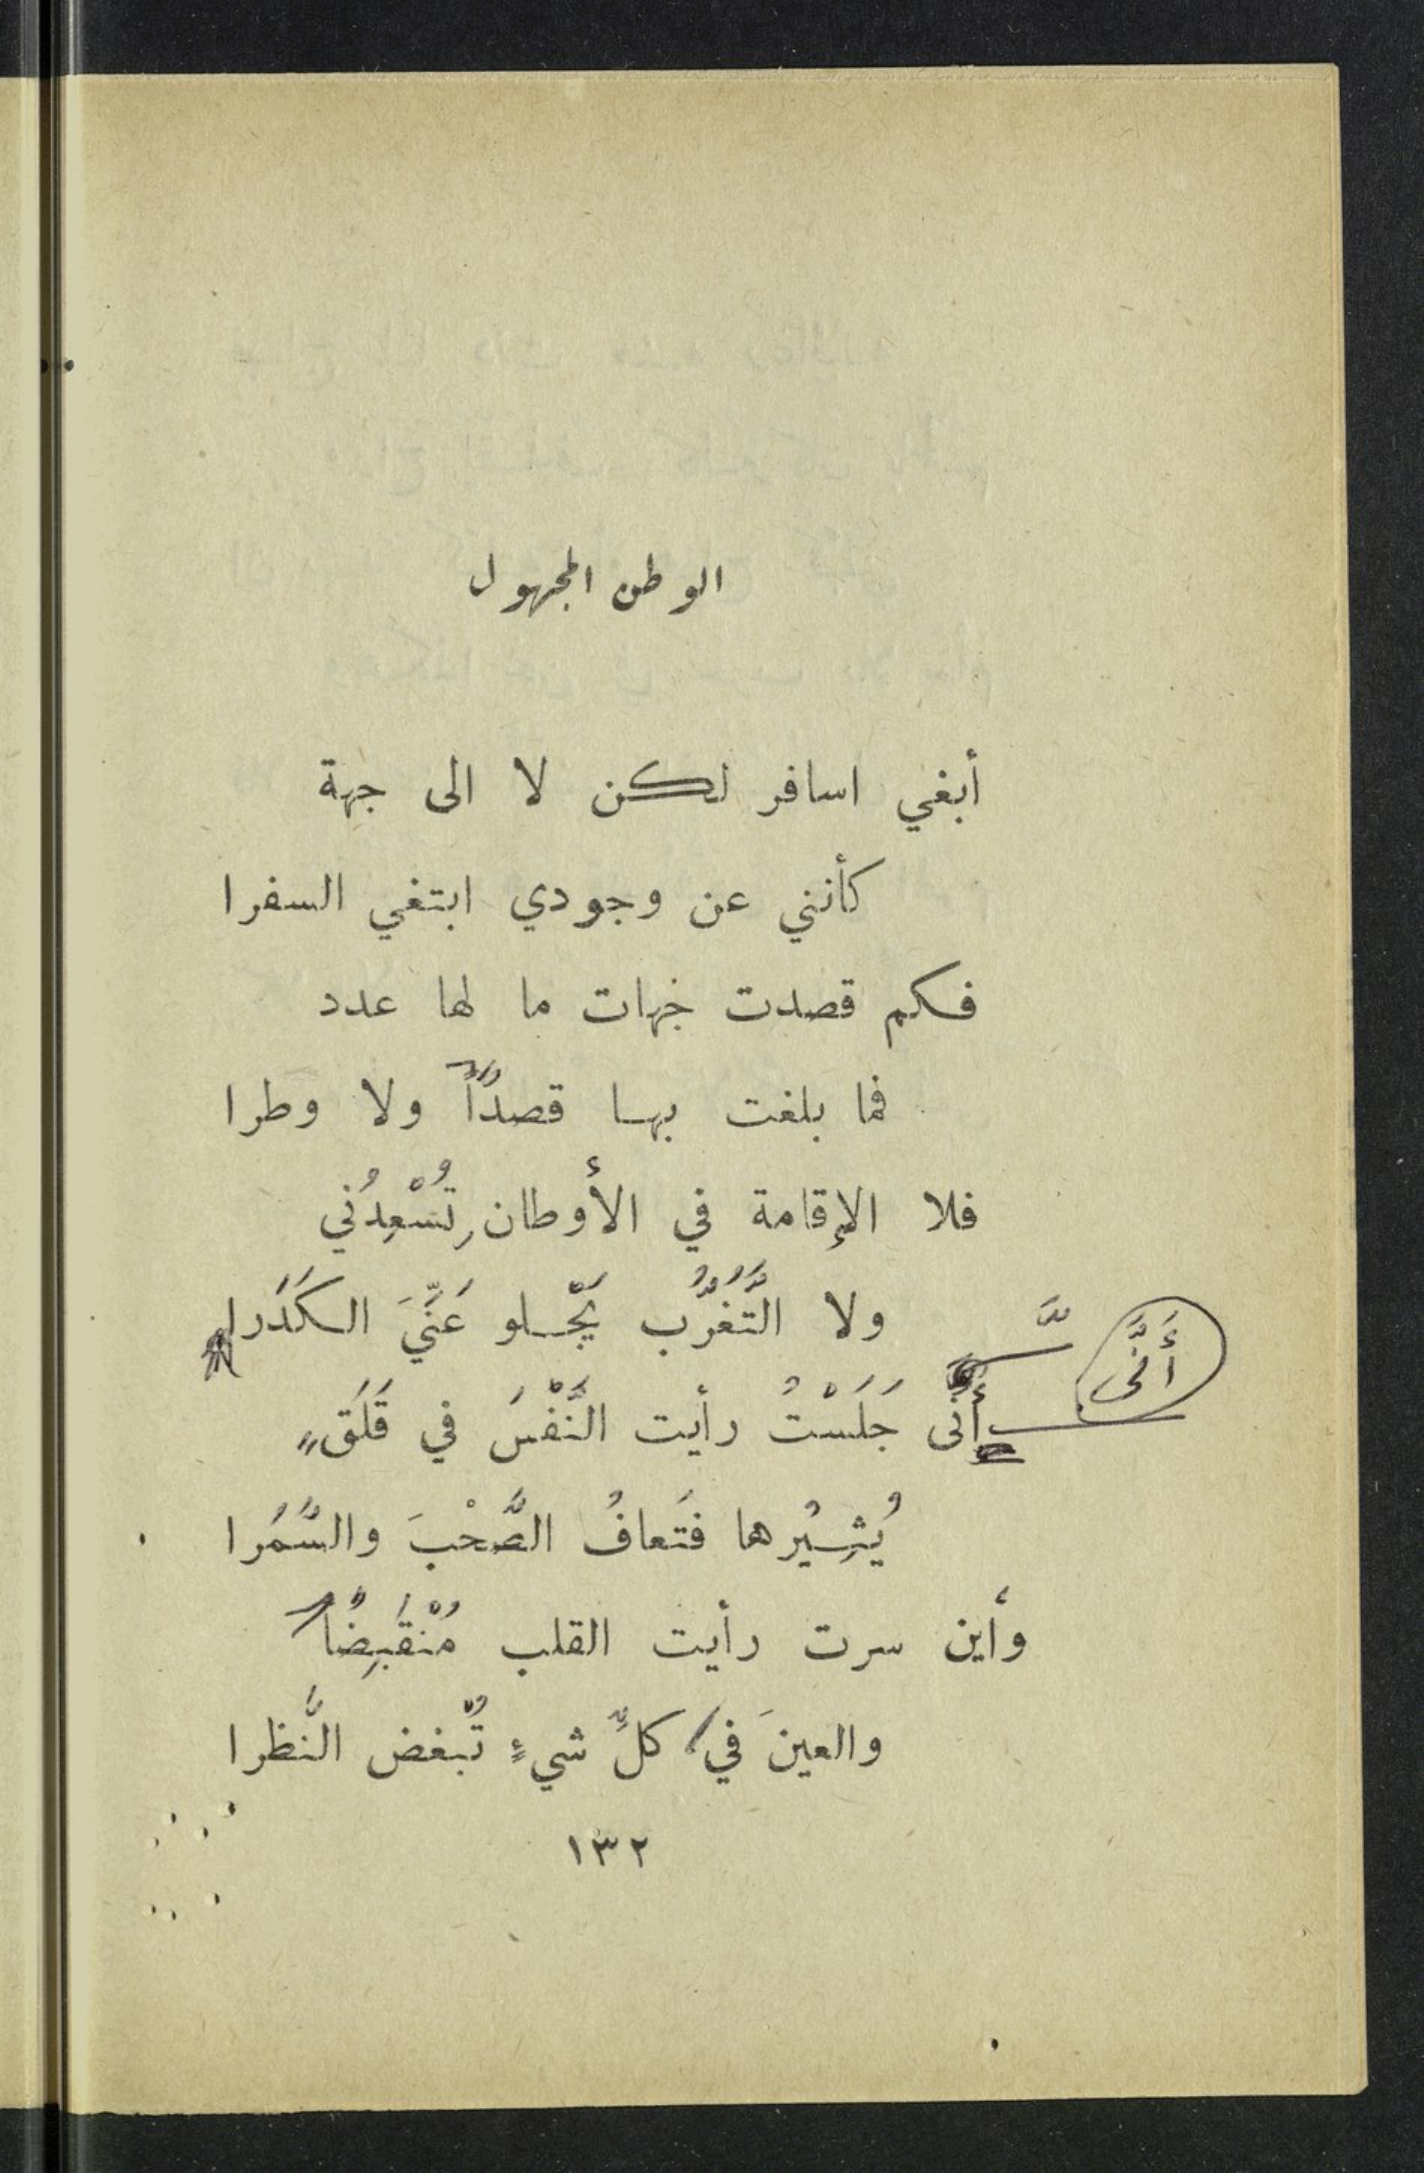 الوطن المجهول
أبغي اسافر لكن لا الى جهة
كأنني عن وجودي ابتغي السفرا
فكم قصدت جهات ما لها عدد
فما بلغت بها قصداً ولا وطرا
فلا الإقامة في الأوطانِ تُسْعِدُني
ولا التَّغَرُّب يَجْلو عَنِّيَ الكَدَرا
أَنَّى
أنَّى جَلَسْتُ رأيت النَّفْسَ في قَلَقٍ
يُثِيُرها فَتَعافُ الصَّحْبَ والسُّمَرا
وأين سرت رأيت القلب مُنْقَبِضًا
والعينَ في كلِّ شيءٍ تُبْغض النَّظرا
١٣٢